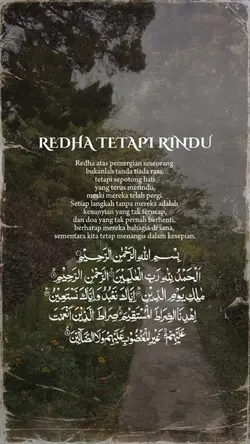 REDHA TETAPI RINDU
Redha atas pemergian seseorang
bukanlah tanda tiada rasa,
tetapi sepotong hati
yang terus merindu,
meski mereka telah pergi.
Setiap langkah tanpa mereka adalah
kesunyian yang tak terucap,
dan doa yang tak pernah berhenti,
berharap mereka bahagia di sana,
sementara kita tetap menangis dalam kesepian.
بِسْمِ اللَّهِ الرَّحْمَٰنِ الرَّحِيمِ
الْحَمْدُ لِلَّهِ رَبِّ الْعَالَمِينَ الرَّحْمَٰنِ الرَّحِيمِ
مَالِكِ يَوْمِ الدِّينِ إِيَّاكَ نَعْبُدُ وَإِيَّاكَ نَسْتَعِينُ
اهْدِنَا الصِّرَاطَ الْمُسْتَقِيمَ صِرَاطَ الَّذِينَ أَنْعَمْتَ
عَلَيْهِمْ غَيْرِ الْمَغْضُوبِ عَلَيْهِمْ وَلَا الضَّالِّينَ